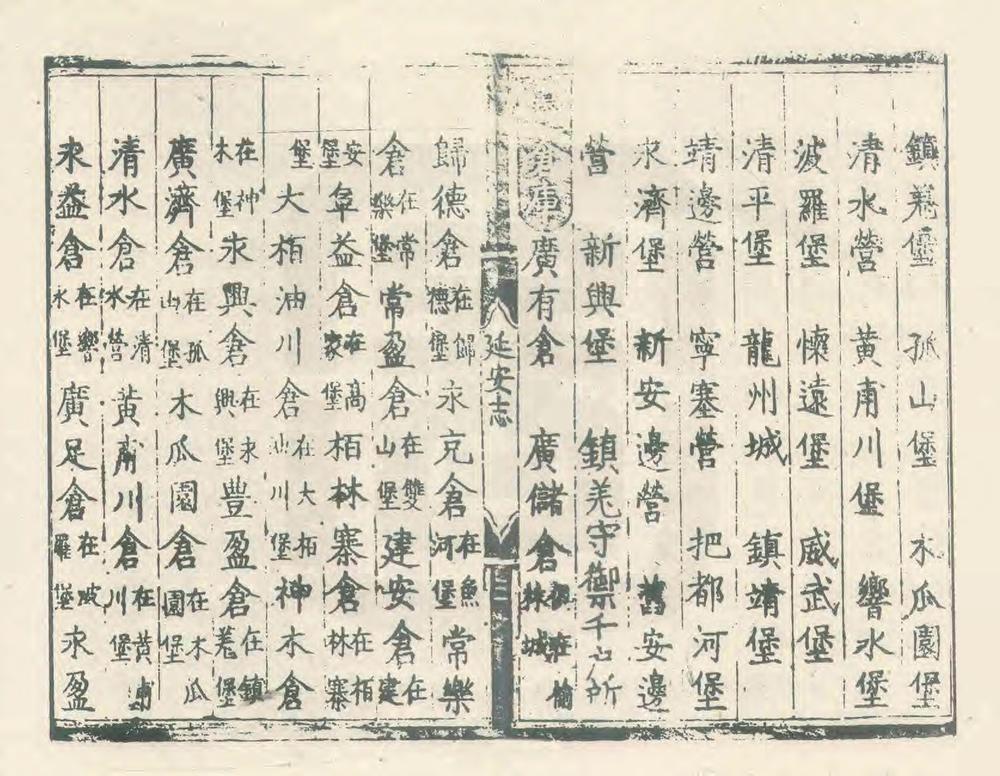 鎮羗堡 孤山堡 木瓜園堡
清水營 黃甫川堡 響水堡
波羅堡 懷遠堡 威武堡
清平堡 龍州城 鎮靖堡
靖邊營 寧塞營 把都河堡
永濟堡 新安邊營 舊安邊
營 新興堡 鎮羌守禦千戶所
倉庫 廣有倉 廣儲倉俱在榆林城
延安志
歸德倉在歸德堡永克倉在魚河堡常樂
倉在常樂堡常盈倉在雙山堡建安倉在建
安堡阜益倉在高家堡栢林寨倉在栢林寨
堡大栢油川倉在大栢油川堡神木倉
在神木堡永興倉在永興堡豊盈倉在鎮羗堡
廣濟倉在孤山堡木瓜園倉在木瓜園堡
清水倉在清水營黃甫川倉在黃甫川堡
永益倉在響水堡廣足倉在波羅堡永盈